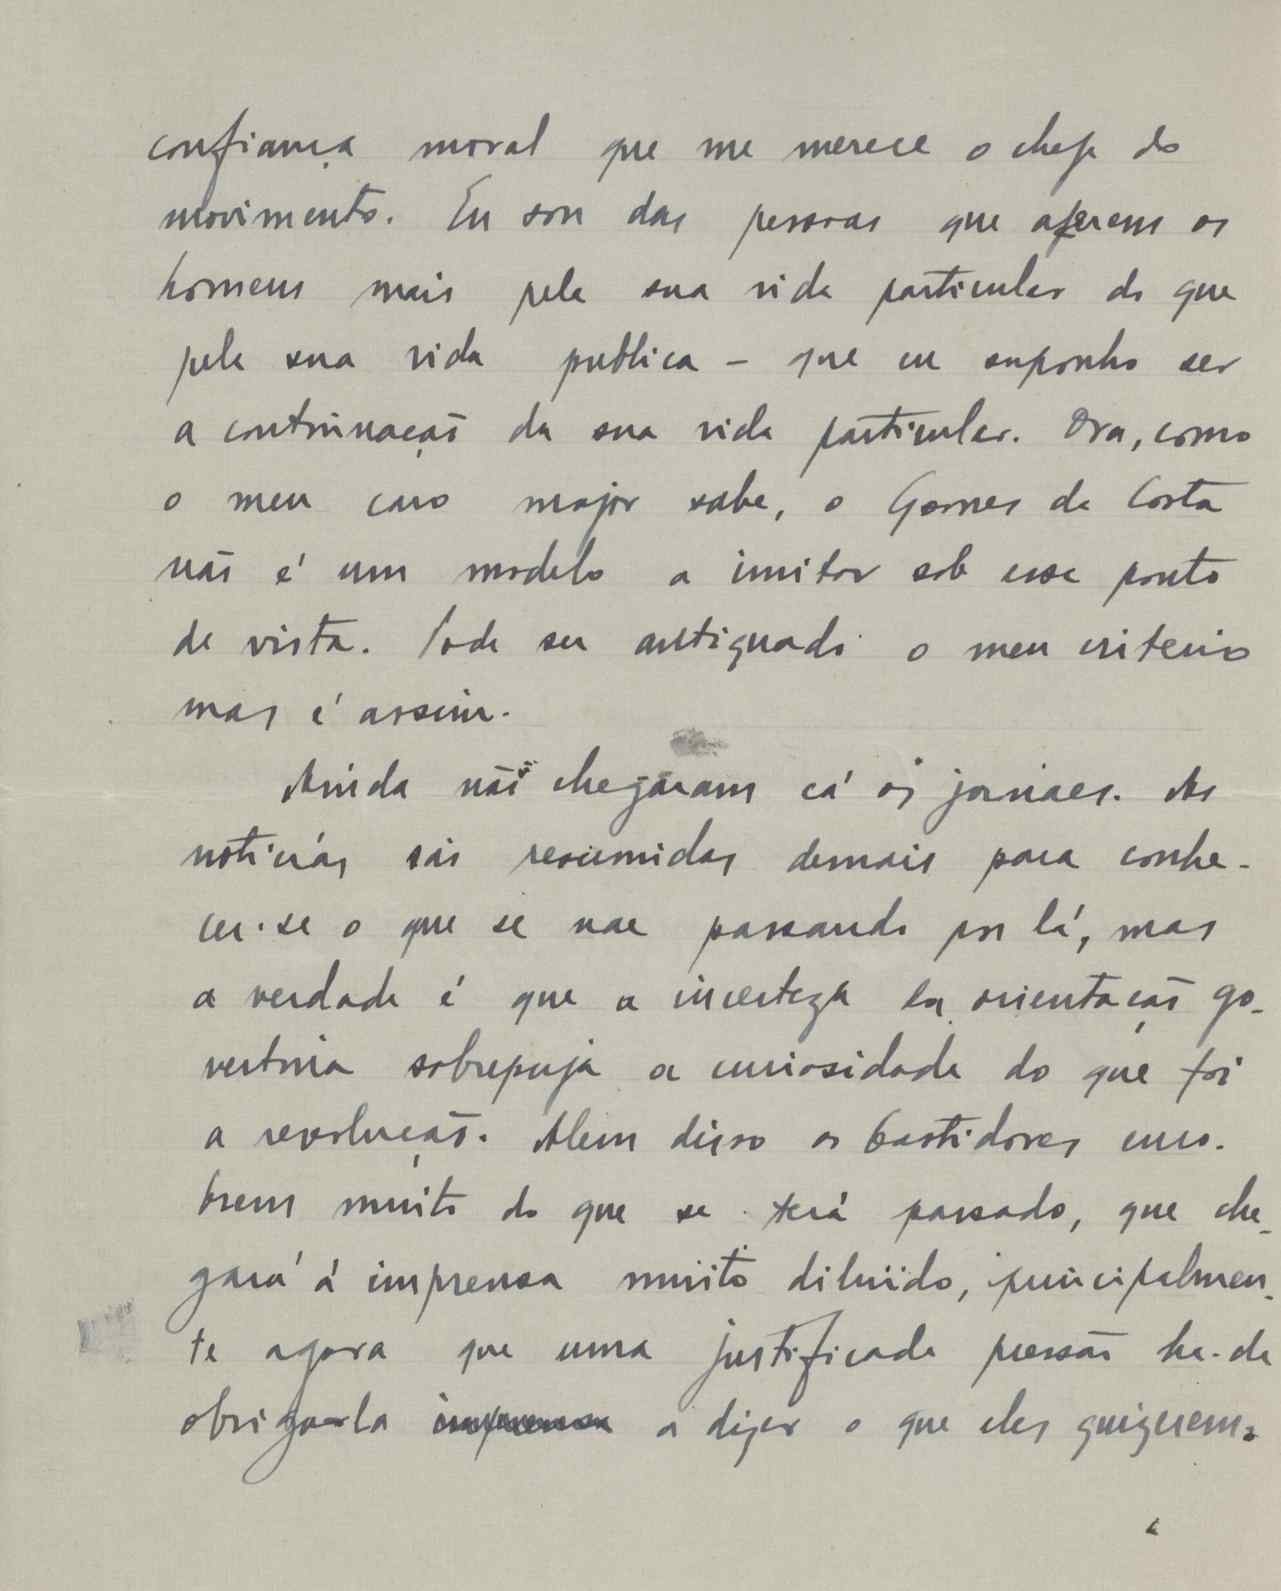 confiança moral que me merece o chefe do
movimento. Eu sou das pessoas que aferem os
homens mais pela sua vida particular do que
pela sua vida publica – que eu suponho ser
a continuação da sua vida particular. Ora, como
o meu caro major sabe, o Gomes da Costa
não é um modelo a imitar sob esse ponto
de vista. Pode ser antiquado o meu criterio
mas é assim.
Ainda não chegaram cá os jornaes. As
noticias são resumidas demais para conhe-
cer-se o que se vae passando por lá, mas
a verdade é que a incerteza da orientação go-
vertina sobrepuja a curiosidade do que foi
a revolução. Alem disso os bastidores enco-
brem muito do que se terá passado, que che-
gará á imprensa muito diluido, principalmen-
te agora que uma justificada pressão ha-de
obriga-la imprensa a dizer o que eles quizerem.